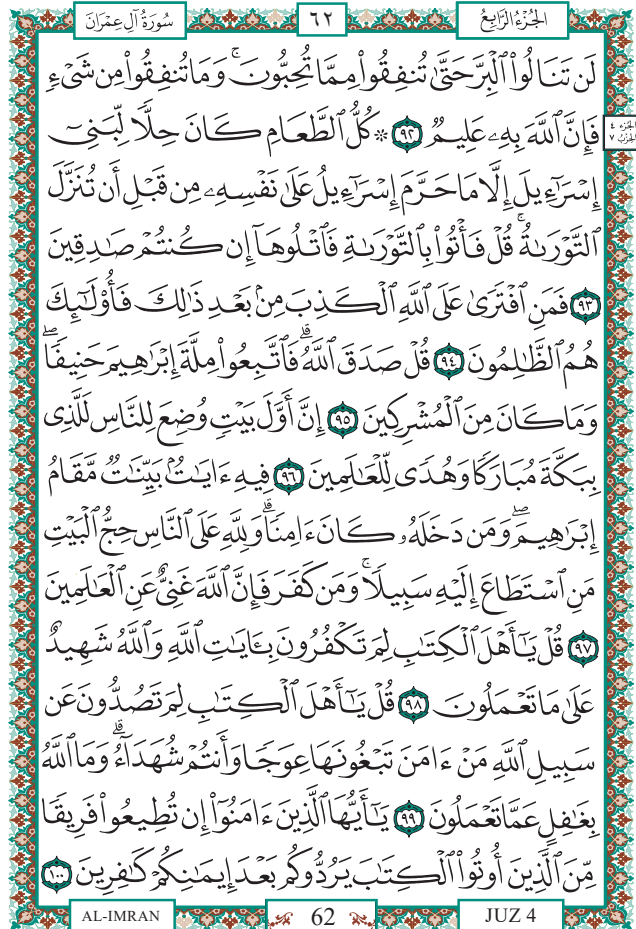 الجُزْءُ الرَّابِعُ
٦٢
سُورَةُ آلِ عِمْرَانَ
لَن تَنَالُوا۟ ٱلْبِرَّ حَتَّىٰ تُنفِقُوا۟ مِمَّا تُحِبُّونَ ۚ وَمَا تُنفِقُوا۟ مِن شَىْءٍ
فَإِنَّ ٱللَّهَ بِهِۦ عَلِيمٌ ٩٢ ۞ كُلُّ ٱلطَّعَامِ كَانَ حِلًّا لِّبَنِىٓ
الجزء ٤
الحزب ٧
إِسْرَٰٓءِيلَ إِلَّا مَا حَرَّمَ إِسْرَٰٓءِيلُ عَلَىٰ نَفْسِهِۦ مِن قَبْلِ أَن تُنَزَّلَ
ٱلتَّوْرَىٰةُ ۗ قُلْ فَأْتُوا۟ بِٱلتَّوْرَىٰةِ فَٱتْلُوهَآ إِن كُنتُمْ صَٰدِقِينَ
٩٣ فَمَنِ ٱفْتَرَىٰ عَلَى ٱللَّهِ ٱلْكَذِبَ مِنۢ بَعْدِ ذَٰلِكَ فَأُو۟لَٰٓئِكَ
هُمُ ٱلظَّٰلِمُونَ ٩٤ قُلْ صَدَقَ ٱللَّهُ ۗ فَٱتَّبِعُوا۟ مِلَّةَ إِبْرَٰهِيمَ حَنِيفًا ۖ
وَمَا كَانَ مِنَ ٱلْمُشْرِكِينَ ٩٥ إِنَّ أَوَّلَ بَيْتٍ وُضِعَ لِلنَّاسِ لَلَّذِى
بِبَكَّةَ مُبَارَكًا وَهُدًى لِّلْعَٰلَمِينَ ٩٦ فِيهِ ءَايَٰتٌۢ بَيِّنَٰتٌ مَّقَامُ
إِبْرَٰهِيمَ ۖ وَمَن دَخَلَهُۥ كَانَ ءَامِنًا ۗ وَلِلَّهِ عَلَى ٱلنَّاسِ حِجُّ ٱلْبَيْتِ
مَنِ ٱسْتَطَاعَ إِلَيْهِ سَبِيلًا ۚ وَمَن كَفَرَ فَإِنَّ ٱللَّهَ غَنِىٌّ عَنِ ٱلْعَٰلَمِينَ
٩٧ قُلْ يَٰٓأَهْلَ ٱلْكِتَٰبِ لِمَ تَكْفُرُونَ بِـَٔايَٰتِ ٱللَّهِ وَٱللَّهُ شَهِيدٌ
عَلَىٰ مَا تَعْمَلُونَ ٩٨ قُلْ يَٰٓأَهْلَ ٱلْكِتَٰبِ لِمَ تَصُدُّونَ عَن
سَبِيلِ ٱللَّهِ مَنْ ءَامَنَ تَبْغُونَهَا عِوَجًا وَأَنتُمْ شُهَدَآءُ ۗ وَمَا ٱللَّهُ
بِغَٰفِلٍ عَمَّا تَعْمَلُونَ ٩٩ يَٰٓأَيُّهَا ٱلَّذِينَ ءَامَنُوٓا۟ إِن تُطِيعُوا۟ فَرِيقًا
مِّنَ ٱلَّذِينَ أُوتُوا۟ ٱلْكِتَٰبَ يَرُدُّوكُم بَعْدَ إِيمَٰنِكُمْ كَٰفِرِينَ ١٠٠
AL-IMRAN
62
JUZ 4